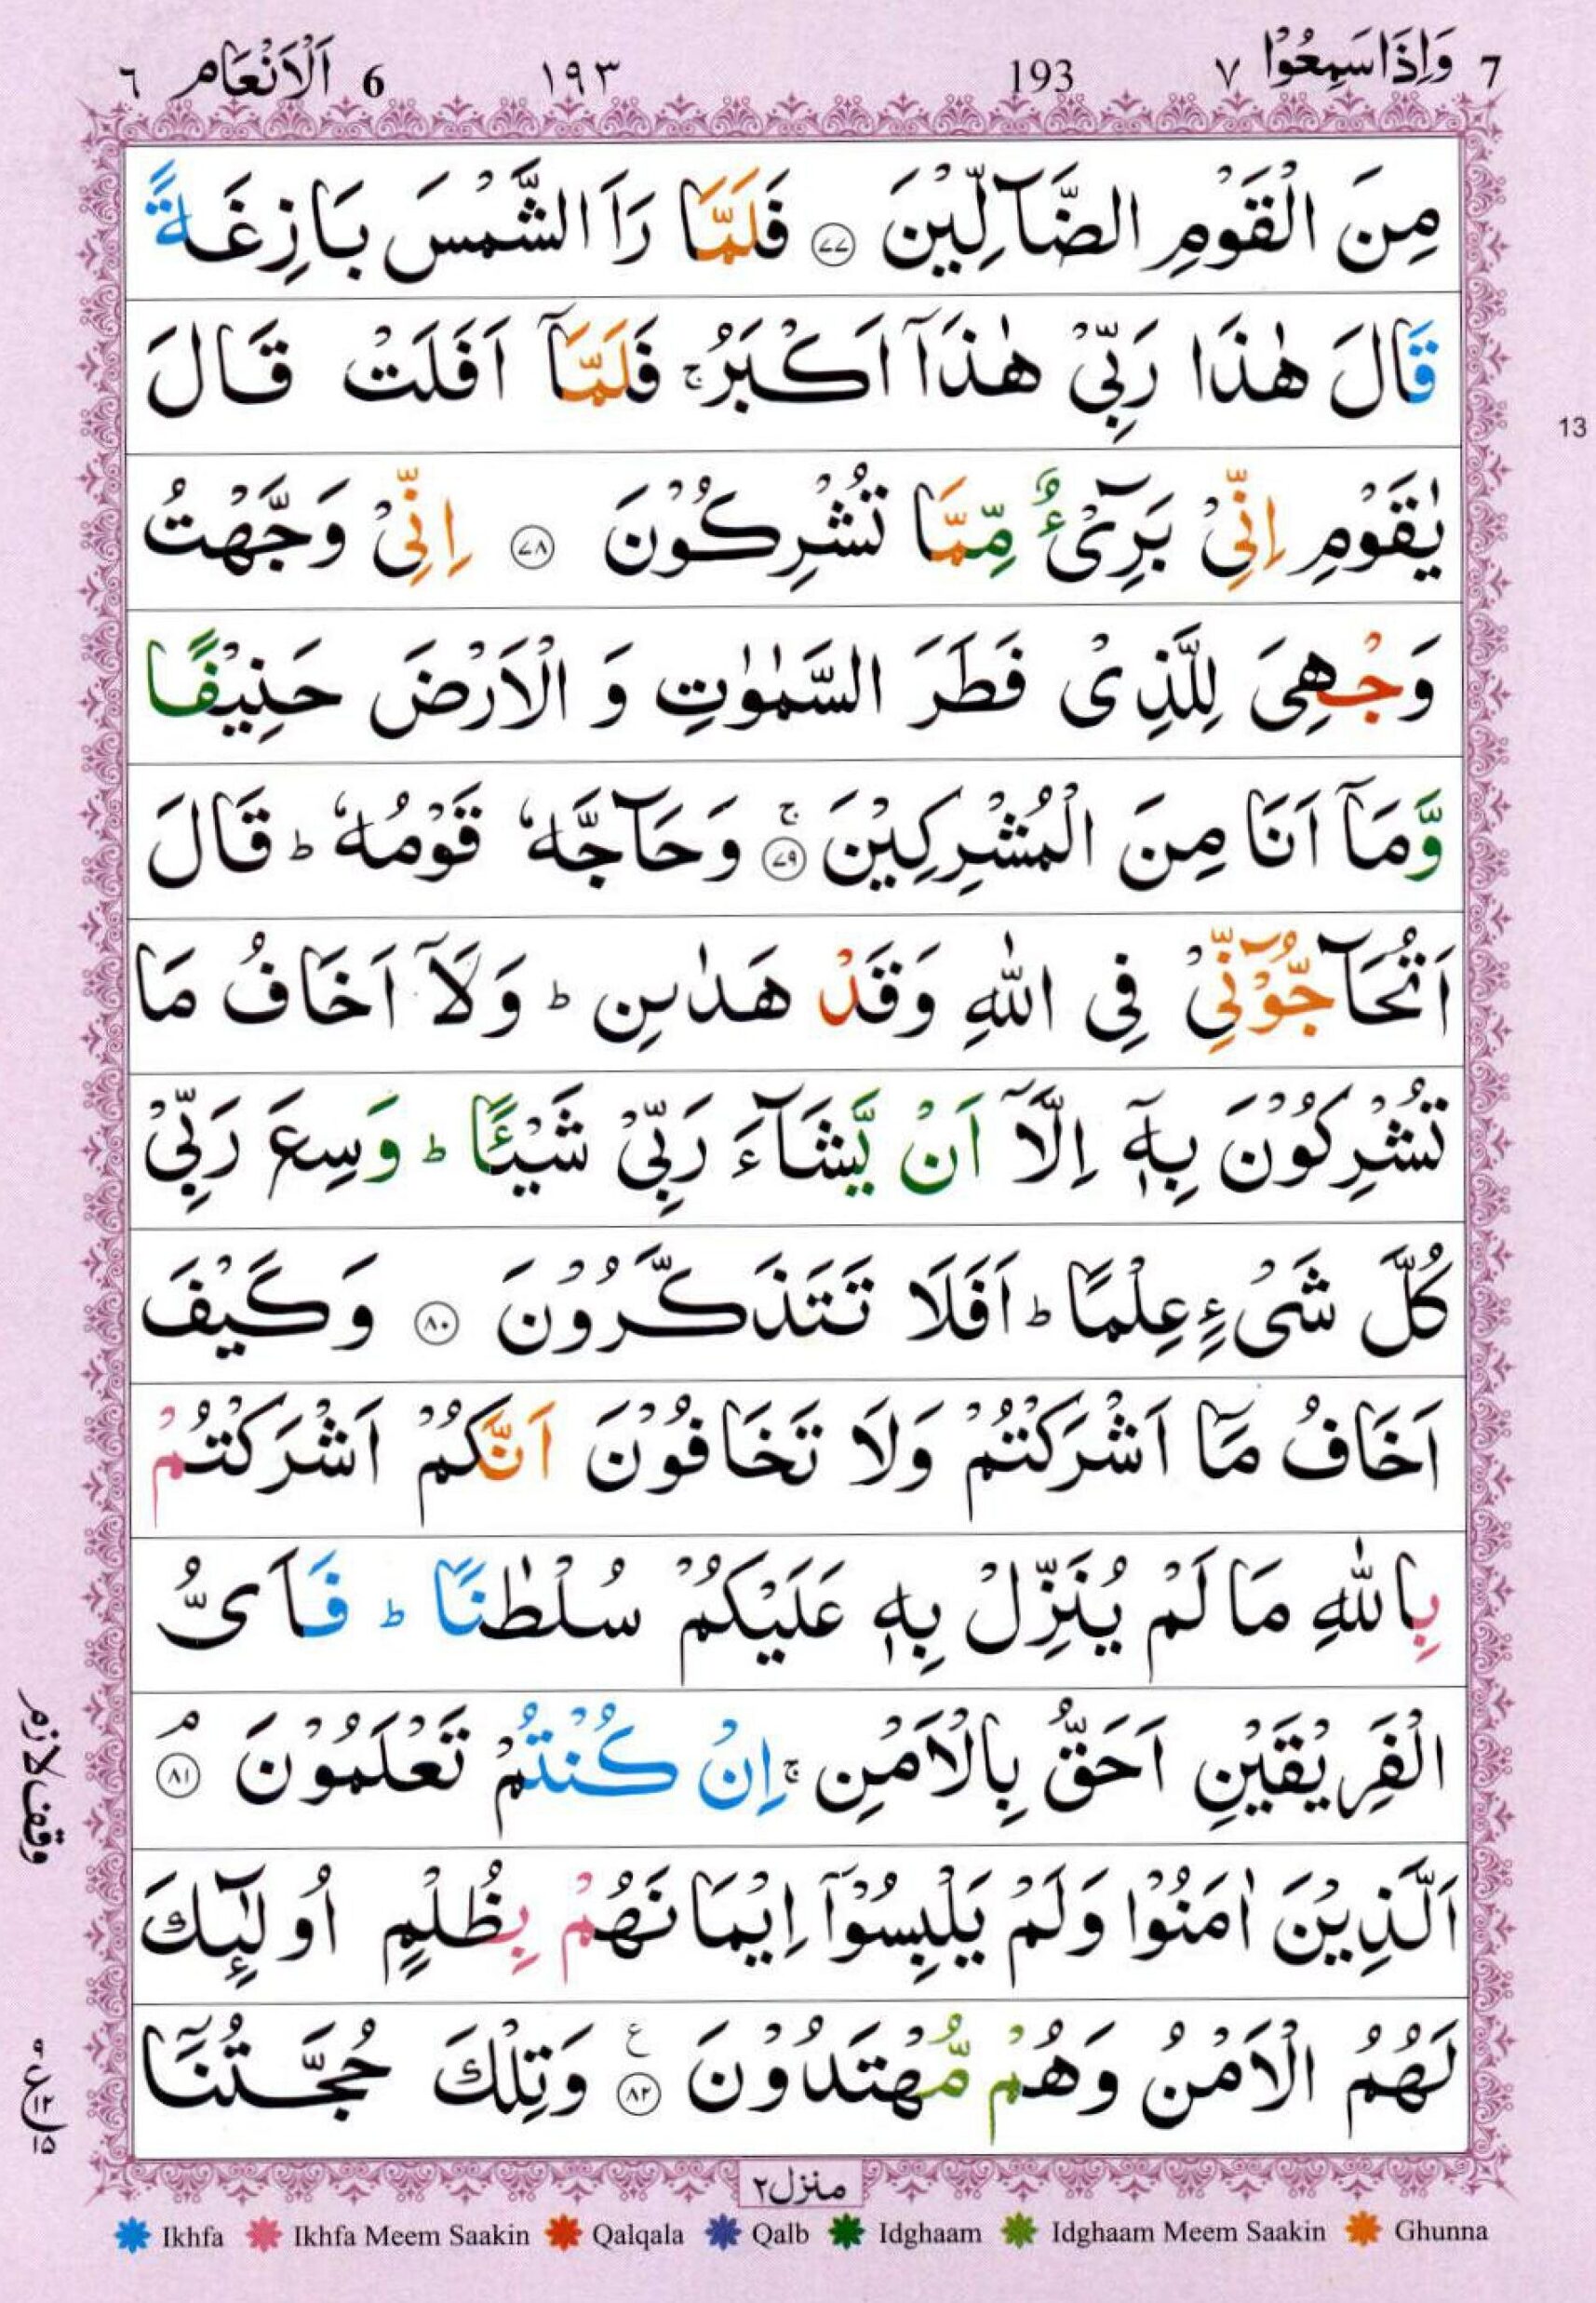 7 وَاِذَا سَمِعُوْا ٧ 193 ١٩٣ 6 اَلْاَنْعَام ٦
مِنَ الْقَوْمِ الضَّآلِّيْنَ ﴿٧٧﴾ فَلَمَّا رَاَ الشَّمْسَ بَازِغَةً
قَالَ هٰذَا رَبِّيْ هٰذَآ اَكْبَرُ ۚ فَلَمَّآ اَفَلَتْ قَالَ
13
يٰقَوْمِ اِنِّيْ بَرِيْٓءٌ مِّمَّا تُشْرِكُوْنَ ﴿٧٨﴾ اِنِّيْ وَجَّهْتُ
وَجْهِيَ لِلَّذِيْ فَطَرَ السَّمٰوٰتِ وَ الْاَرْضَ حَنِيْفًا
وَّمَآ اَنَا مِنَ الْمُشْرِكِيْنَ ۚ ﴿٧٩﴾ وَحَآجَّهٗ قَوْمُهٗ ؕ قَالَ
اَتُحَآجُّوْٓنِّيْ فِي اللّٰهِ وَقَدْ هَدٰىنِ ؕ وَلَآ اَخَافُ مَا
تُشْرِكُوْنَ بِهٖٓ اِلَّآ اَنْ يَّشَآءَ رَبِّيْ شَيْـًٔا ؕ وَسِعَ رَبِّيْ
كُلَّ شَيْءٍ عِلْمًا ؕ اَفَلَا تَتَذَكَّرُوْنَ ﴿٨٠﴾ وَكَيْفَ
اَخَافُ مَآ اَشْرَكْتُمْ وَلَا تَخَافُوْنَ اَنَّكُمْ اَشْرَكْتُمْ
بِاللّٰهِ مَا لَمْ يُنَزِّلْ بِهٖ عَلَيْكُمْ سُلْطٰنًا ؕ فَاَيُّ
الْفَرِيْقَيْنِ اَحَقُّ بِالْاَمْنِ ۚ اِنْ كُنْتُمْ تَعْلَمُوْنَ ۘ ﴿٨١﴾
وقف لازم
اَلَّذِيْنَ اٰمَنُوْا وَلَمْ يَلْبِسُوْٓا اِيْمَانَهُمْ بِظُلْمٍ اُولٰٓئِكَ
لَهُمُ الْاَمْنُ وَهُمْ مُّهْتَدُوْنَ ع ﴿٨٢﴾ وَتِلْكَ حُجَّتُنَآ
٩ ع ١٢ ١٥
منزل ٢
Ikhfa Ikhfa Meem Saakin Qalqala Qalb Idghaam Idghaam Meem Saakin Ghunna